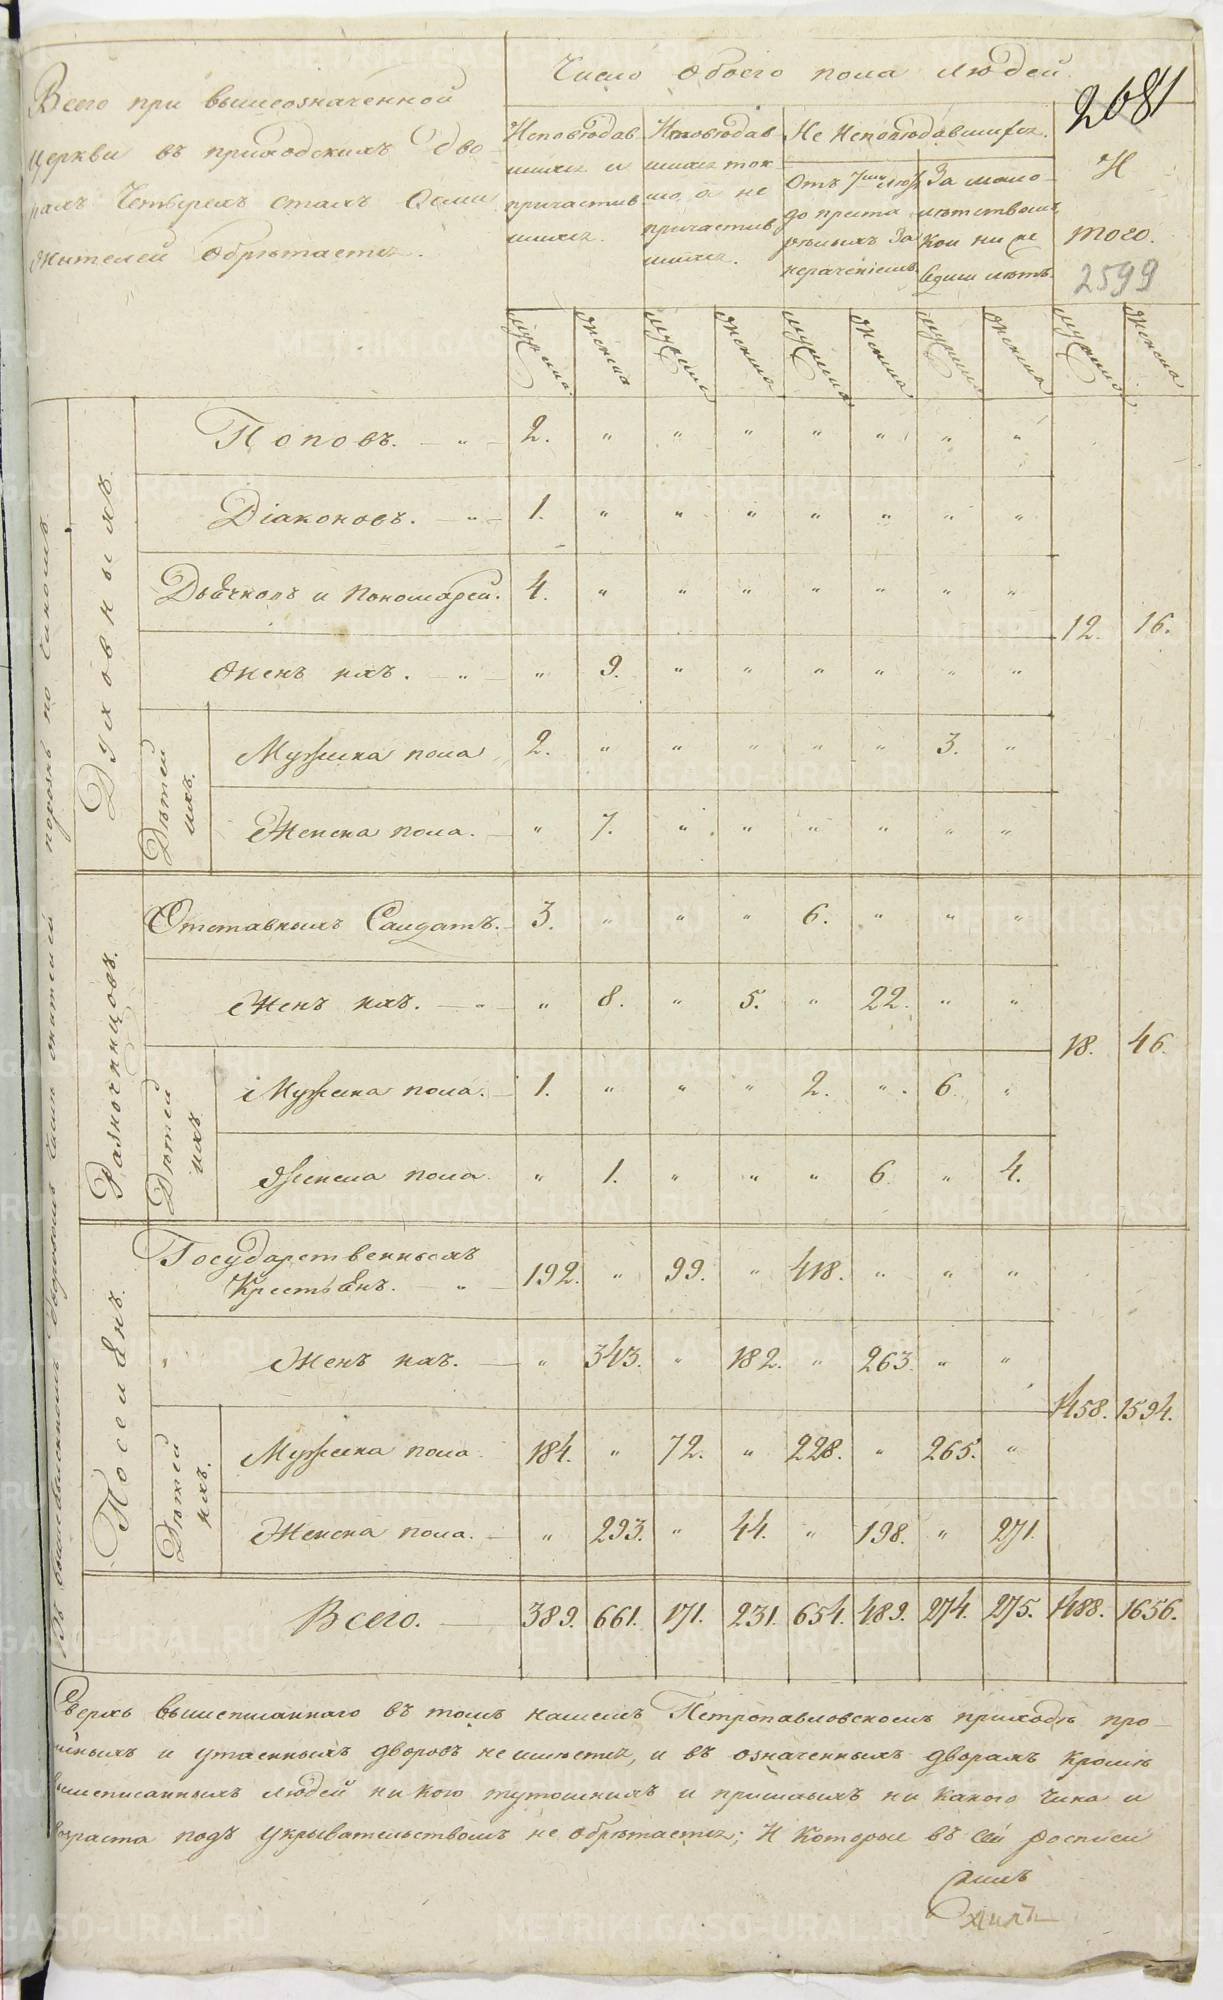 Всего при вышеозначенной
церкви въ приходскихъ дво-
рахъ Четырехъ стахъ Осми
жителей обрѣтается.
Число обоего пола людей.
2681
Исповѣдав
шихся и
причастив
шихся.
Исповѣдав
шихся ток
мо, а не
причастив
шихся.
Не исповѣдавшихся.
Отъ 7ми лѣтъ
до преста
рѣлыхъ За
нерачениемъ
За мало-
лѣтствомъ
кои ниже
седми лѣтъ.
И
того.
2599
мужеска. женска мужеска женска мужеска женска мужеска женска мужеска женска
Духовныхъ.
Поповъ. — „ — 2. „ „ „ „ „ „ „
Діаконовъ. — „ — 1. „ „ „ „ „ „ „
Дьячковъ и Пономарей. 4. „ „ „ „ „ „ „ 12. 16.
Женъ ихъ. — „ — „ 9. „ „ „ „ „ „
Дѣтей ихъ.
Мужеска пола 2. „ „ „ „ „ 3. „
Женска пола. — „ 7. „ „ „ „ „ „
Разночинцовъ.
Отставныхъ Салдатъ. 3. „ „ „ 6. „ „ „
Женъ ихъ. — „ „ 8. „ 5. „ 22. „ „ 18. 46.
Дѣтей ихъ
Мужеска пола. — 1. „ „ „ 2. „ 6. „
Женска пола. „ 1. „ „ „ 6. „ 4.
Поселянъ.
Государственныхъ
Крестьянъ. — „ — 192. „ 99. „ 418. „ „ „
Женъ ихъ. — „ 343. „ 182. „ 263. „ „ 1458. 1594.
Дѣтей ихъ.
Мужеска пола. 184. „ 72. „ 228. „ 265. „
Женска пола. — „ 293. „ 44. „ 198. „ 271.
Всего. — 389. 661. 171. 231. 654. 489. 274. 275. 1488. 1656.
Сверхъ вышеписаннаго въ томъ нашемъ Петропавловскомъ приходѣ про-
писныхъ и утаенныхъ дворовъ не имѣется, и въ означенныхъ дворахъ кромѣ
вышеписанныхъ людей ни кого тутошнихъ и пришлыхъ ни какого чина и
возраста подъ укрывательствомъ не обрѣтается; И которые въ сей росписи
METRIKI.GASO-URAL.RU